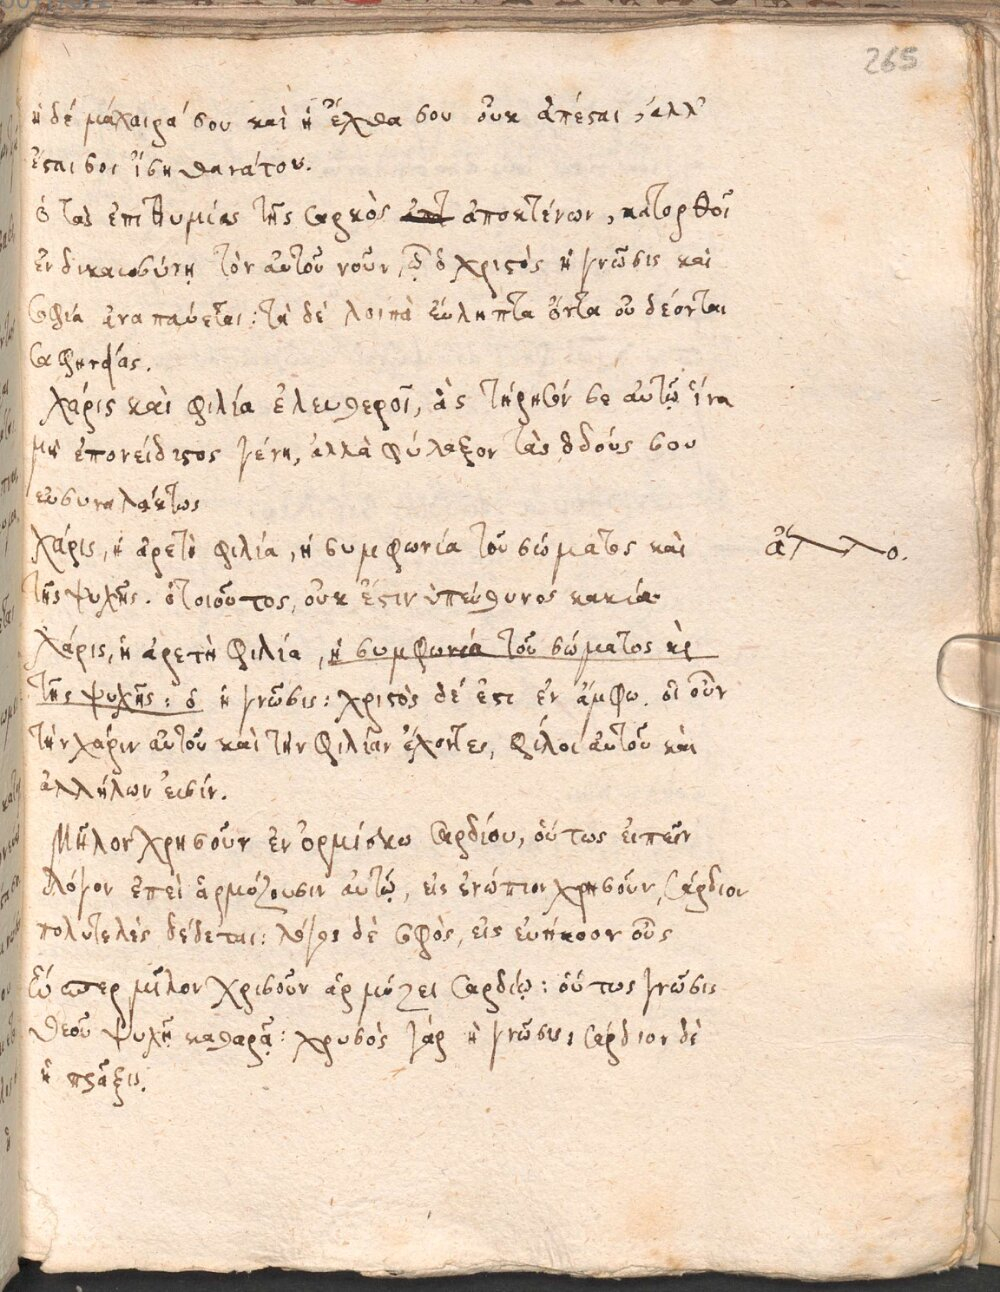 265
ἡ δέ μάχαιρά σου καὶ ἡ ἔχθρα σου οὐκ ἀπέσται, ἀλλ'
ἔσται σοι ἴση θανάτου.
ὁ τὰς ἐπιθυμίας τῆς σαρκὸς ἀποκτένων, κατορθοῖ
ἐν δικαιοσύνῃ τὸν αὐτοῦ νοῦν, ᾧ ὁ χριστός ἡ γνῶσις καὶ
σοφία ἀναπαύεται: τὰ δέ λοιπὰ εὔληπτα ὄντα οὐ δέονται
σαφηνείας.
Χάρις καὶ φιλία ἐλευθεροῖ, ἃς τήρησόν σε αὐτῷ ἵνα
μὴ ἐπονείδιστος γένῃ, ἀλλὰ φύλαξον τὰς ὁδούς σου
εὐσυναλάκτως
Χάρις, ἡ ἀρετὴ φιλία, ἡ συμφωνία τοῦ σώματος καὶ
ἄλλο.
τῆς ψυχῆς. ὁ τοιοῦτος, οὐκ ἔστιν ὑπεύθυνος κακία
Χάρις, ἡ ἀρετὴ φιλία, ἡ συμφωνία τοῦ σώματος καὶ
τῆς ψυχῆς: ὁ ἡ γνῶσις: χριστὸς δέ ἐστι ἐν ἄμφω. οἱ οὖν
τὴν χάριν αὐτοῦ καὶ τὴν φιλίαν ἔχοντες, φίλοι αὐτοῦ καὶ
ἀλλήλων εἰσίν.
Μῆλον χρησοῦν ἐν ὁρμίσκω σαρδίου, οὕτως εἰπεῖν
λόγον ἐπεὶ ἁρμόζουσιν αὐτῷ, εἰς ἐνώπιον χρησοῦν, σάρδιον
πολυτελὲς δέδεται: λόγος δὲ σοφός, εἰς εὐήκοον οὖς
ὥσπερ μῆλον χρισοῦν ἁρμόζει σαρδίῳ: οὕτως γνῶσις
θεοῦ ψυχῇ καθαρᾷ: χρυσὸς γάρ ἡ γνῶσις: σάρδιον δὲ
ἡ πρᾶξις.